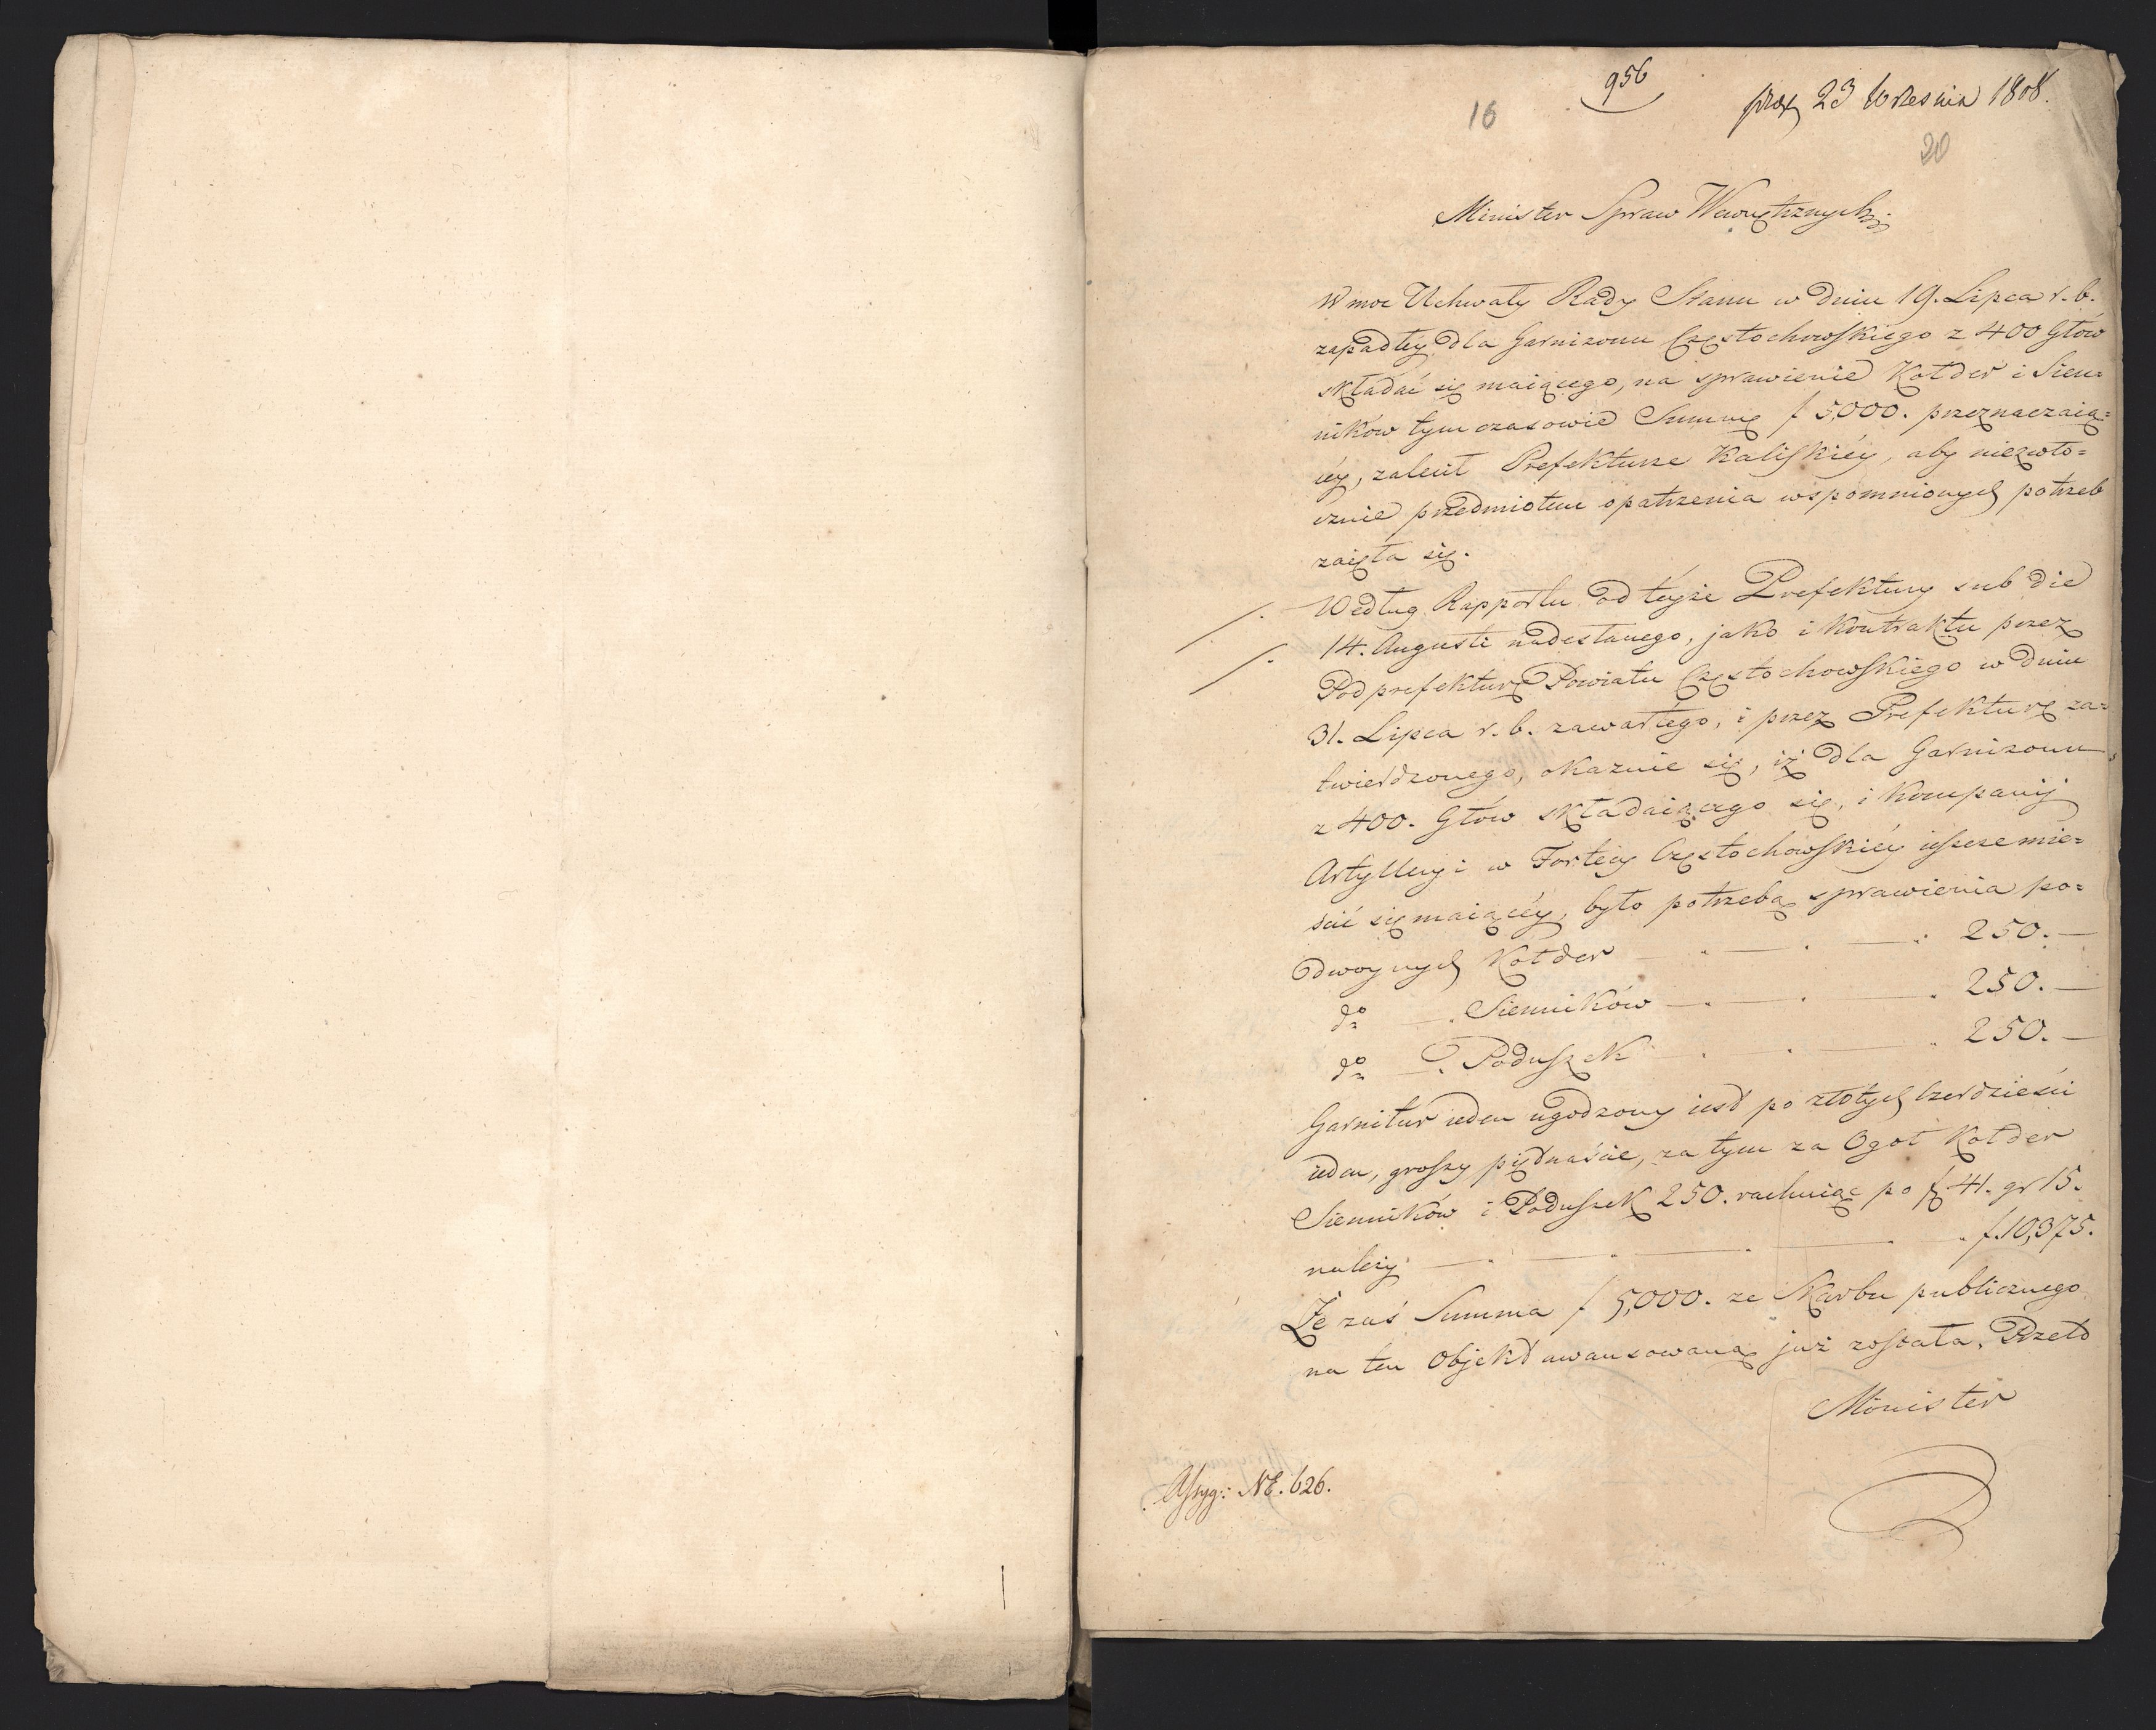 956
prez 23 Września 1808.
16
20
Minister Spraw Wewnętrznych
W moc Uchwały Rady Stanu w dniu 19. Lipca r. b.
zapadłéy dla Garnizonu Częstochowskiego z 400 Głow
składać się maiącego, na sprawienie Kołder i Sien=
ników tymczasowie Summę f 5,000. przeznaczaią=
céy, zalecił Prefekturze Kaliskiéy, aby niezwło=
cznie przedmiotem opatrzenia wspomnionych potrzeb
zaięła się.
Według Rapportu od teyże Prefektury sub die
14. Augusti nadesłanego, jako i Kontraktu przez
Podprefekturę Powiatu Częstochowskiego w dniu
31. Lipca r. b. zawartego, i przez Prefekturę za=
twierdzonego, okazuie się, iż dla Garnizonu
z 400. Głow składaiącego się, i Kompanij
Artylleryi w Fortecy Częstochowskiéy ieszcze mie=
ścić się maiącéy, było potrzebą sprawienia po=
dwoynych Kołder 250.
do Sienników 250.
do Poduszek 250.
Garnitur ieden ugodzony iest po złotych czterdzieści
ieden, groszy piętnaście, za tym za Ogoł Kołder
Sienników i Poduszek 250. rachuiąc po f 41. gr 15.
należy f. 10,375.
Że zaś Summa f 5,000. ze Skarbu publicznego
na ten Objekt awansowaną już została. Przeto
Minister
Assyg: NE. 626.